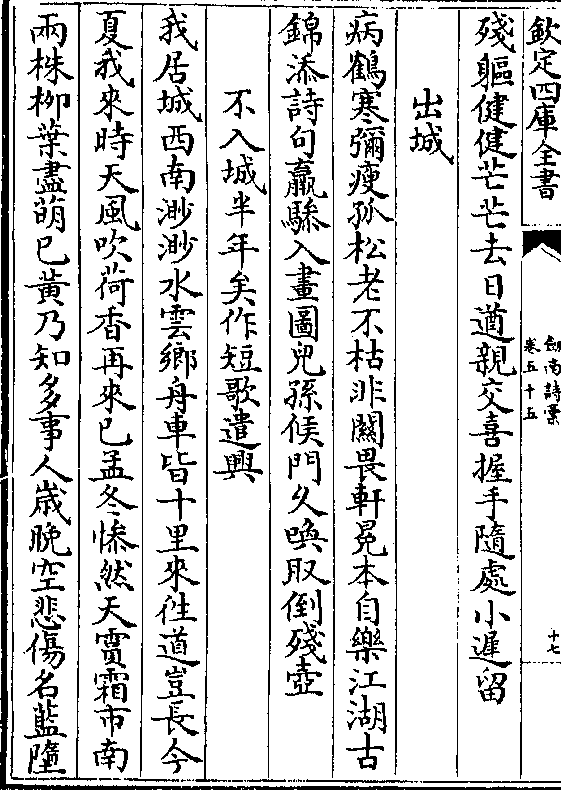 欽定四庫全書
劍南詩稾
卷五十五
十七
殘軀健健芒芒去日遒親交喜握手隨處小遲留
出城
病鶴寒彌瘦孤松老不枯非關畏軒冕本自樂江湖古
錦添詩句羸驂入畫圖兒孫候門久喚取倒殘壺
不入城半年矣作短歌遣興
我居城西南渺渺水雲鄉舟車皆十里來徃道豈長今
夏我來時天風吹荷香再來已孟冬慘然天霣霜市南
兩株柳葉盡萌已黃乃知多事人歳晚空悲傷名藍墮